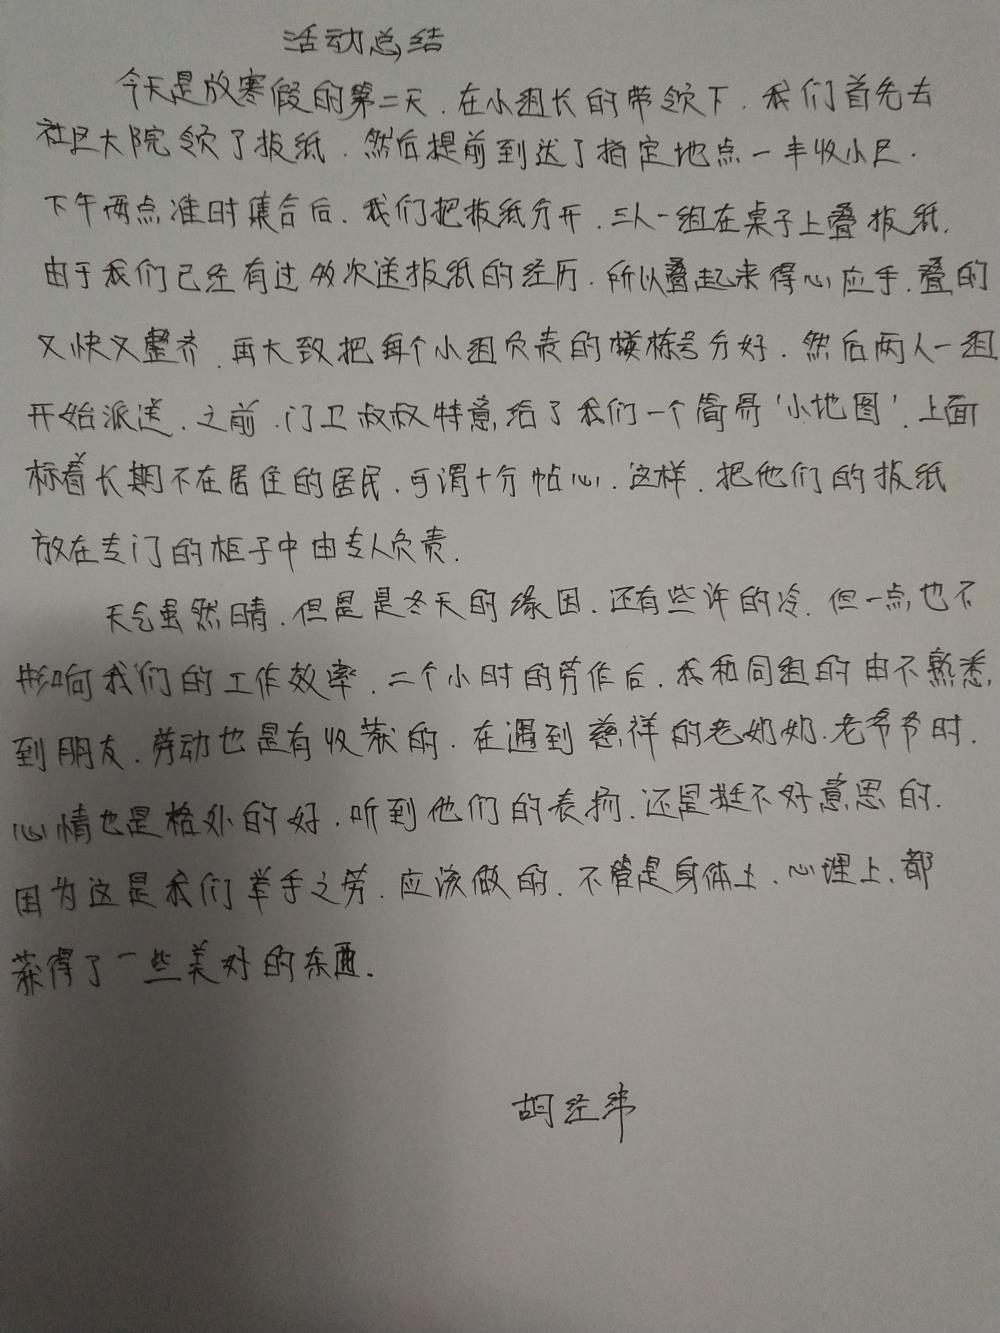 活动总结
今天是放寒假的第二天.在小组长的带领下.我们首先去
社区大院领了报纸.然后提前到达了指定地点一丰收小区.
下午两点准时集合后.我们把报纸分开.三人一组在桌子上叠报纸.
由于我们已经有过多次送报纸的经历.所以叠起来得心应手.叠的
又快又整齐.再大致把每个小组负责的楼栋号分好.然后两人一组
开始派送.之前.门卫叔叔特意给了我们一个简易'小地图'.上面
标着长期不在居住的居民.可谓十分帖心.这样.把他们的报纸
放在专门的柜子中由专人负责.
天气虽然晴.但是是冬天的缘因.还有些许的冷.但一点也不
影响我们的工作效率.二个小时的劳作后.我和同组的由不熟悉
到朋友.劳动也是有收获的.在遇到慈祥的老奶奶.老爷爷时.
心情也是格外的好.听到他们的表扬.还是挺不好意思的.
因为这是我们举手之劳.应该做的.不管是身体上.心理上.都
获得了一些美好的东西.
胡经纬